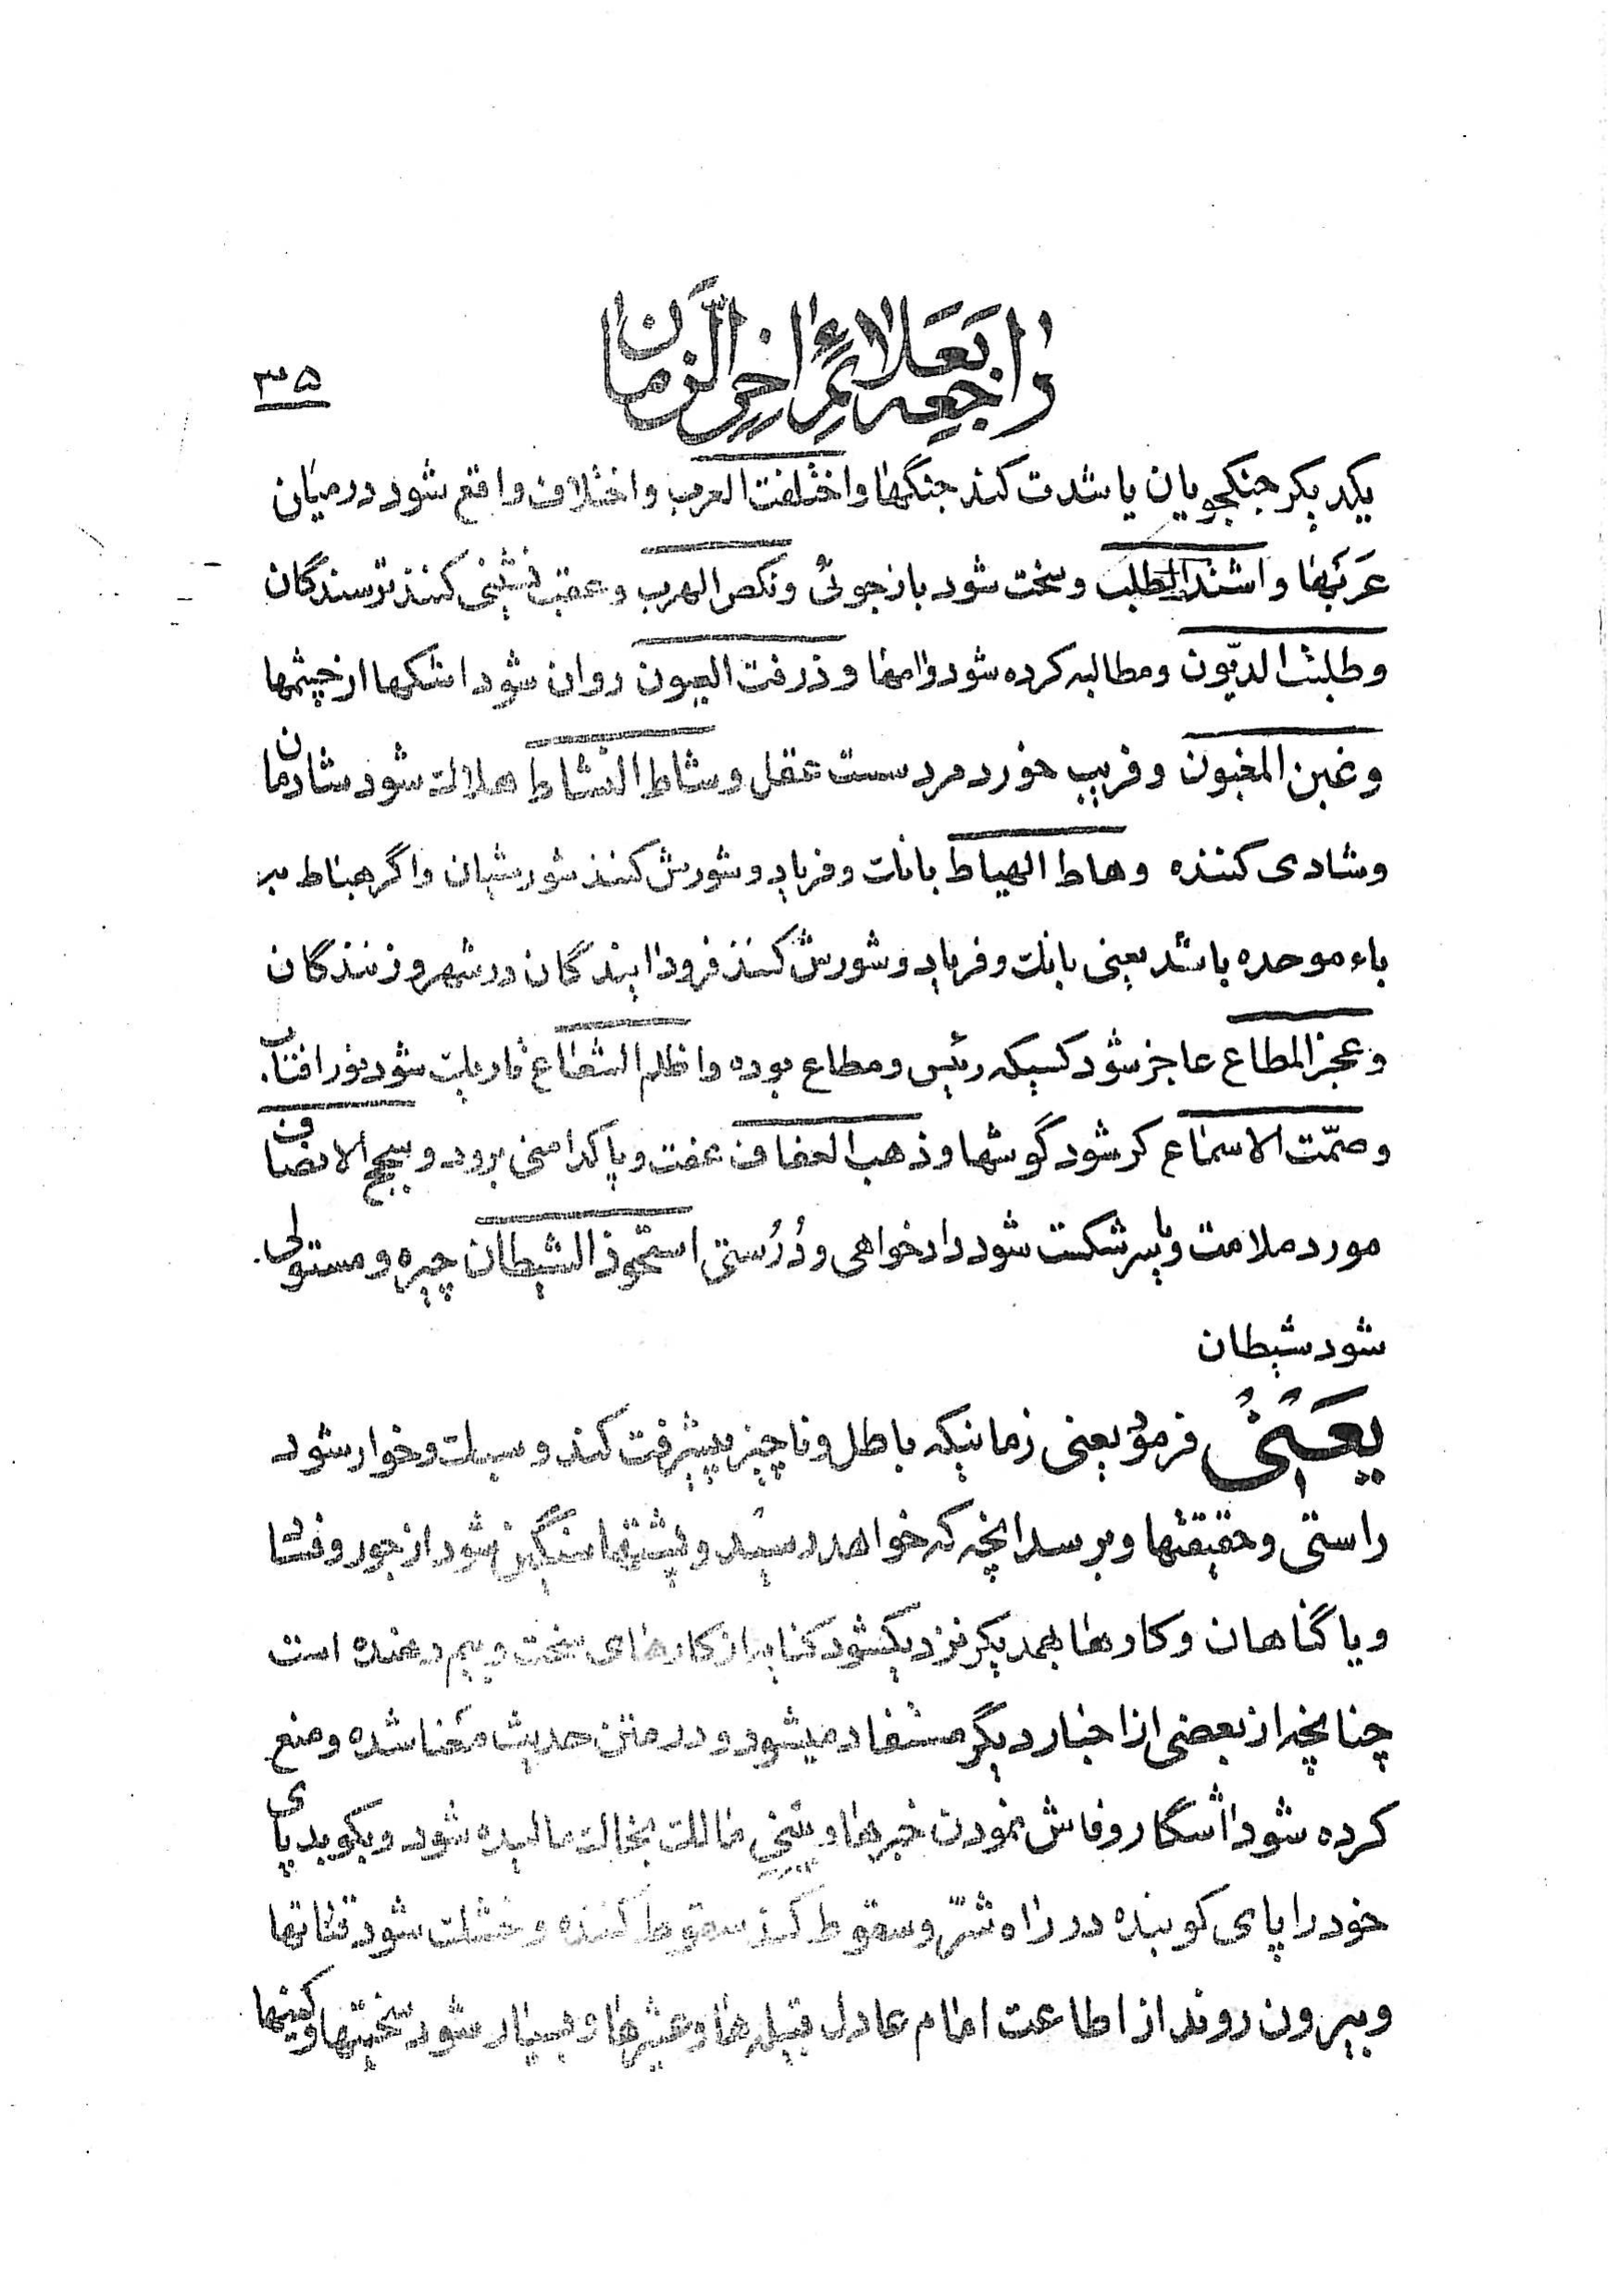 راجعه بعلائم اخر الزمان
۳۵
یکدیگر جنگجویان یا شدت کند جنگها واختلفت العرب واختلاف واقع شود در میان
عربها واشتد الطلب وسخت شود باز جوئی ونکص الهرب وعقب نشینی کنند ترسندگان
وطلبت الدیون ومطالبه کرده شود وامها وذرفت العیون روان شود اشکها از چشمها
وغبن المغبون وفریب خورد مرد سست عقل وشاط النشاط هلاک شود شادمان
وشادی کننده وهاط الهیاط بانک وفریاد وشورش کنند شورشیان واگر هباط به
باء موحده باشد یعنی بانک وفریاد وشورش کنند فرود ایندگان در شهر وزنندگان
وعجز المطاع عاجز شود کسیکه رئیس ومطاع بوده واظلم الشعاع تاریک شود نور افتاب
وصمّت الاسماع کر شود گوشها وذهب العفاف عفت وپاکدامنی برود وسجح الانصاف
مورد ملامت وپر شکست شود داد خواهی ودُرُستی استحوذ الشیطان چیره ومستولی
شود شیطان
یَعنی فرمود یعنی زمانیکه باطل وناچیز پیشرفت کند وسبک وخوار شود
راستی وحقیقتها وبرسد انچه که خواهد رسید وپشتها سنگین شود از جور وفشا
ویا گناهان وکارها بهمدیگر نزدیکشود کنایه از کارهای سخت وبیم دهنده است
چنانچه از بعضی از اخبار دیگر مستفاد میشود ودر متن حدیث معنا شده ومنع
کرده شود اشگار وفاش نمودن خبرها وبینی مالک بخاک مالیده شود وبکوبد پای
خود را پای کوبنده در راه شتر وسقوط کند سقوط کننده وخشک شود قناتها
وبیرون روند از اطاعت امام عادل قبیله ها وعشیرها وبسیار شود سختیها وکینها